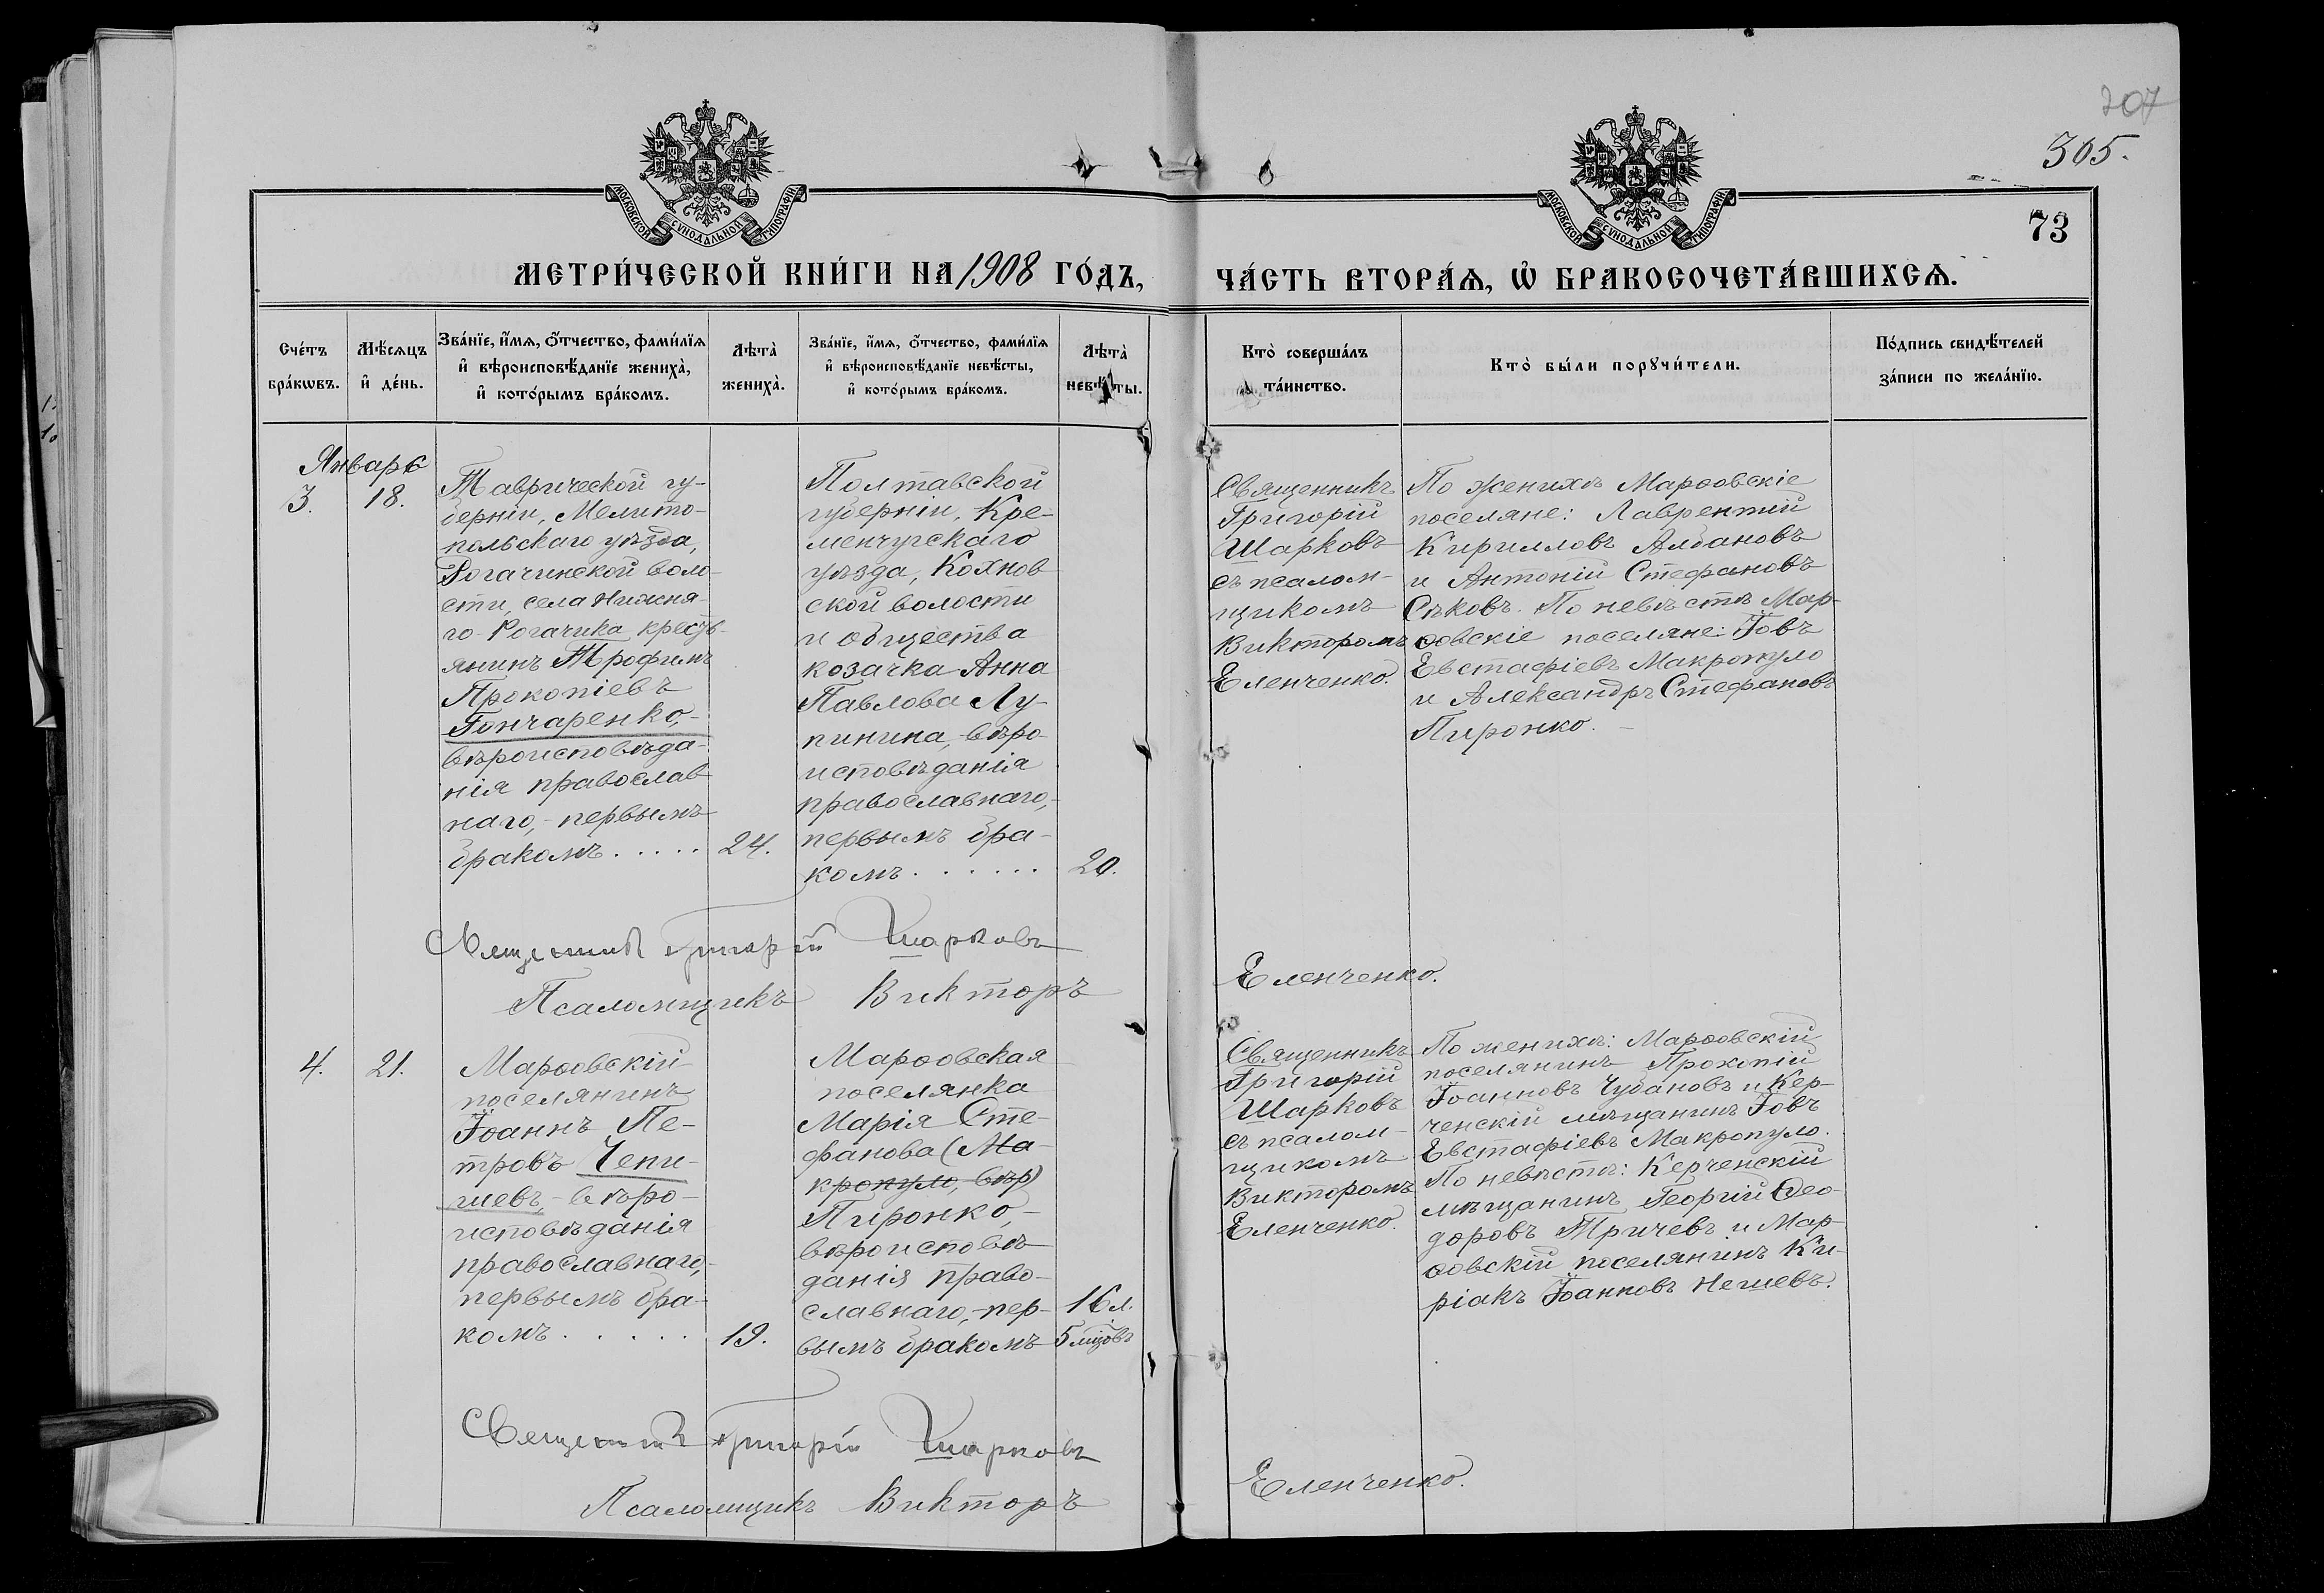 207
305.
73
МОСКОВСКОЙ СѴНОДАЛЬНОЙ ТИПОГРАФІИ
МОСКОВСКОЙ СѴНОДАЛЬНОЙ ТИПОГРАФІИ
МЕТРИ́ЧЕСКОЙ КНИ́ГИ НА 1908 ГО́ДЪ,
ЧА́СТЬ ВТОРА́Ѧ, Ѡ҆ БРАКОСОЧЕТА́ВШИХСѦ.
Сче́тъ бра́кѡвъ.
Мѣ́сѧцъ и҆ де́нь.
Зва́нїе, и҆́мѧ, ѻ҆́тчество, фами́лїѧ
и҆ вѣроисповѣ́данїе жениха̀,
и҆ кото́рымъ бра́комъ.
Лѣта̀ жениха̀.
Зва́нїе, и҆́мѧ, ѻ҆́тчество, фами́лїѧ
и҆ вѣроисповѣ́данїе невѣ́сты,
и҆ кото́рымъ бра́комъ.
Лѣта̀ невѣ́сты.
Кто̀ соверша́лъ
та́инство.
Кто̀ бы́ли порꙋчи́тели.
По́дпись свидѣ́телей
за́писи по жела́нїю.
Январь
3.
18.
Таврической гу-
берніи, Мелито-
польскаго уѣзда,
Рогачинской воло-
сти, села Нижня-
го-Рогачика крестъ-
янинъ Трофимъ
Прокопіевъ
Гончаренко,-
вѣроисповѣда-
нія православ-
наго,- первымъ
бракомъ.....
24.
Полтавской
губерніи, Кре-
менчугскаго
уѣзда, Кохнов
ской волости
и общества
козачка Анна
Павлова Лу-
пинина,- вѣро-
исповѣданія
православнаго,-
первымъ бра-
комъ......
20.
Священникъ
Григорій
Шарковъ
съ псалом-
щикомъ
Викторомъ
Еленченко.
По женихѣ Марѳовскіе
поселяне: Лаврентій
Кирилловъ Албановъ
и Антоній Стефановъ
Сѣковъ. По невѣстѣ Мар-
ѳовскіе поселяне: Іовъ
Евстафіевъ Макропуло
и Александръ Стефановъ
Пиронко.-
Священникъ Григорій Шарковъ
Псаломщикъ Викторъ
Еленченко.
4.
21.
Марѳовскій
поселянинъ
Іоаннъ Пе-
тровъ Чепи-
шевъ,- вѣро-
исповѣданія
православнаго,-
первымъ бра-
комъ.....
19.
Марѳовская
поселянка
Марія Сте-
фанова (Ма-
кропуло, вѣр)
Пиронко,-
вѣроисповѣ-
данія право-
славнаго,- пер-
вымъ бракомъ
16 л.
5 мцовъ
Священникъ
Григорій
Шарковъ
съ псалом-
щикомъ
Викторомъ
Еленченко.
По женихѣ: Марѳовскій
поселянинъ Прокопій
Іоанновъ Чубановъ и Кер-
ченскій мѣщанинъ Іовъ
Евстафіевъ Макропуло.
По невѣстѣ: Керченскій
мѣщанинъ Георгій Ѳео-
доровъ Тричевъ и Мар-
ѳовскій поселянинъ Ки-
ріакъ Іоанновъ Негиевъ.
Священникъ Григорій Шарковъ
Псаломщикъ Викторъ
Еленченко.